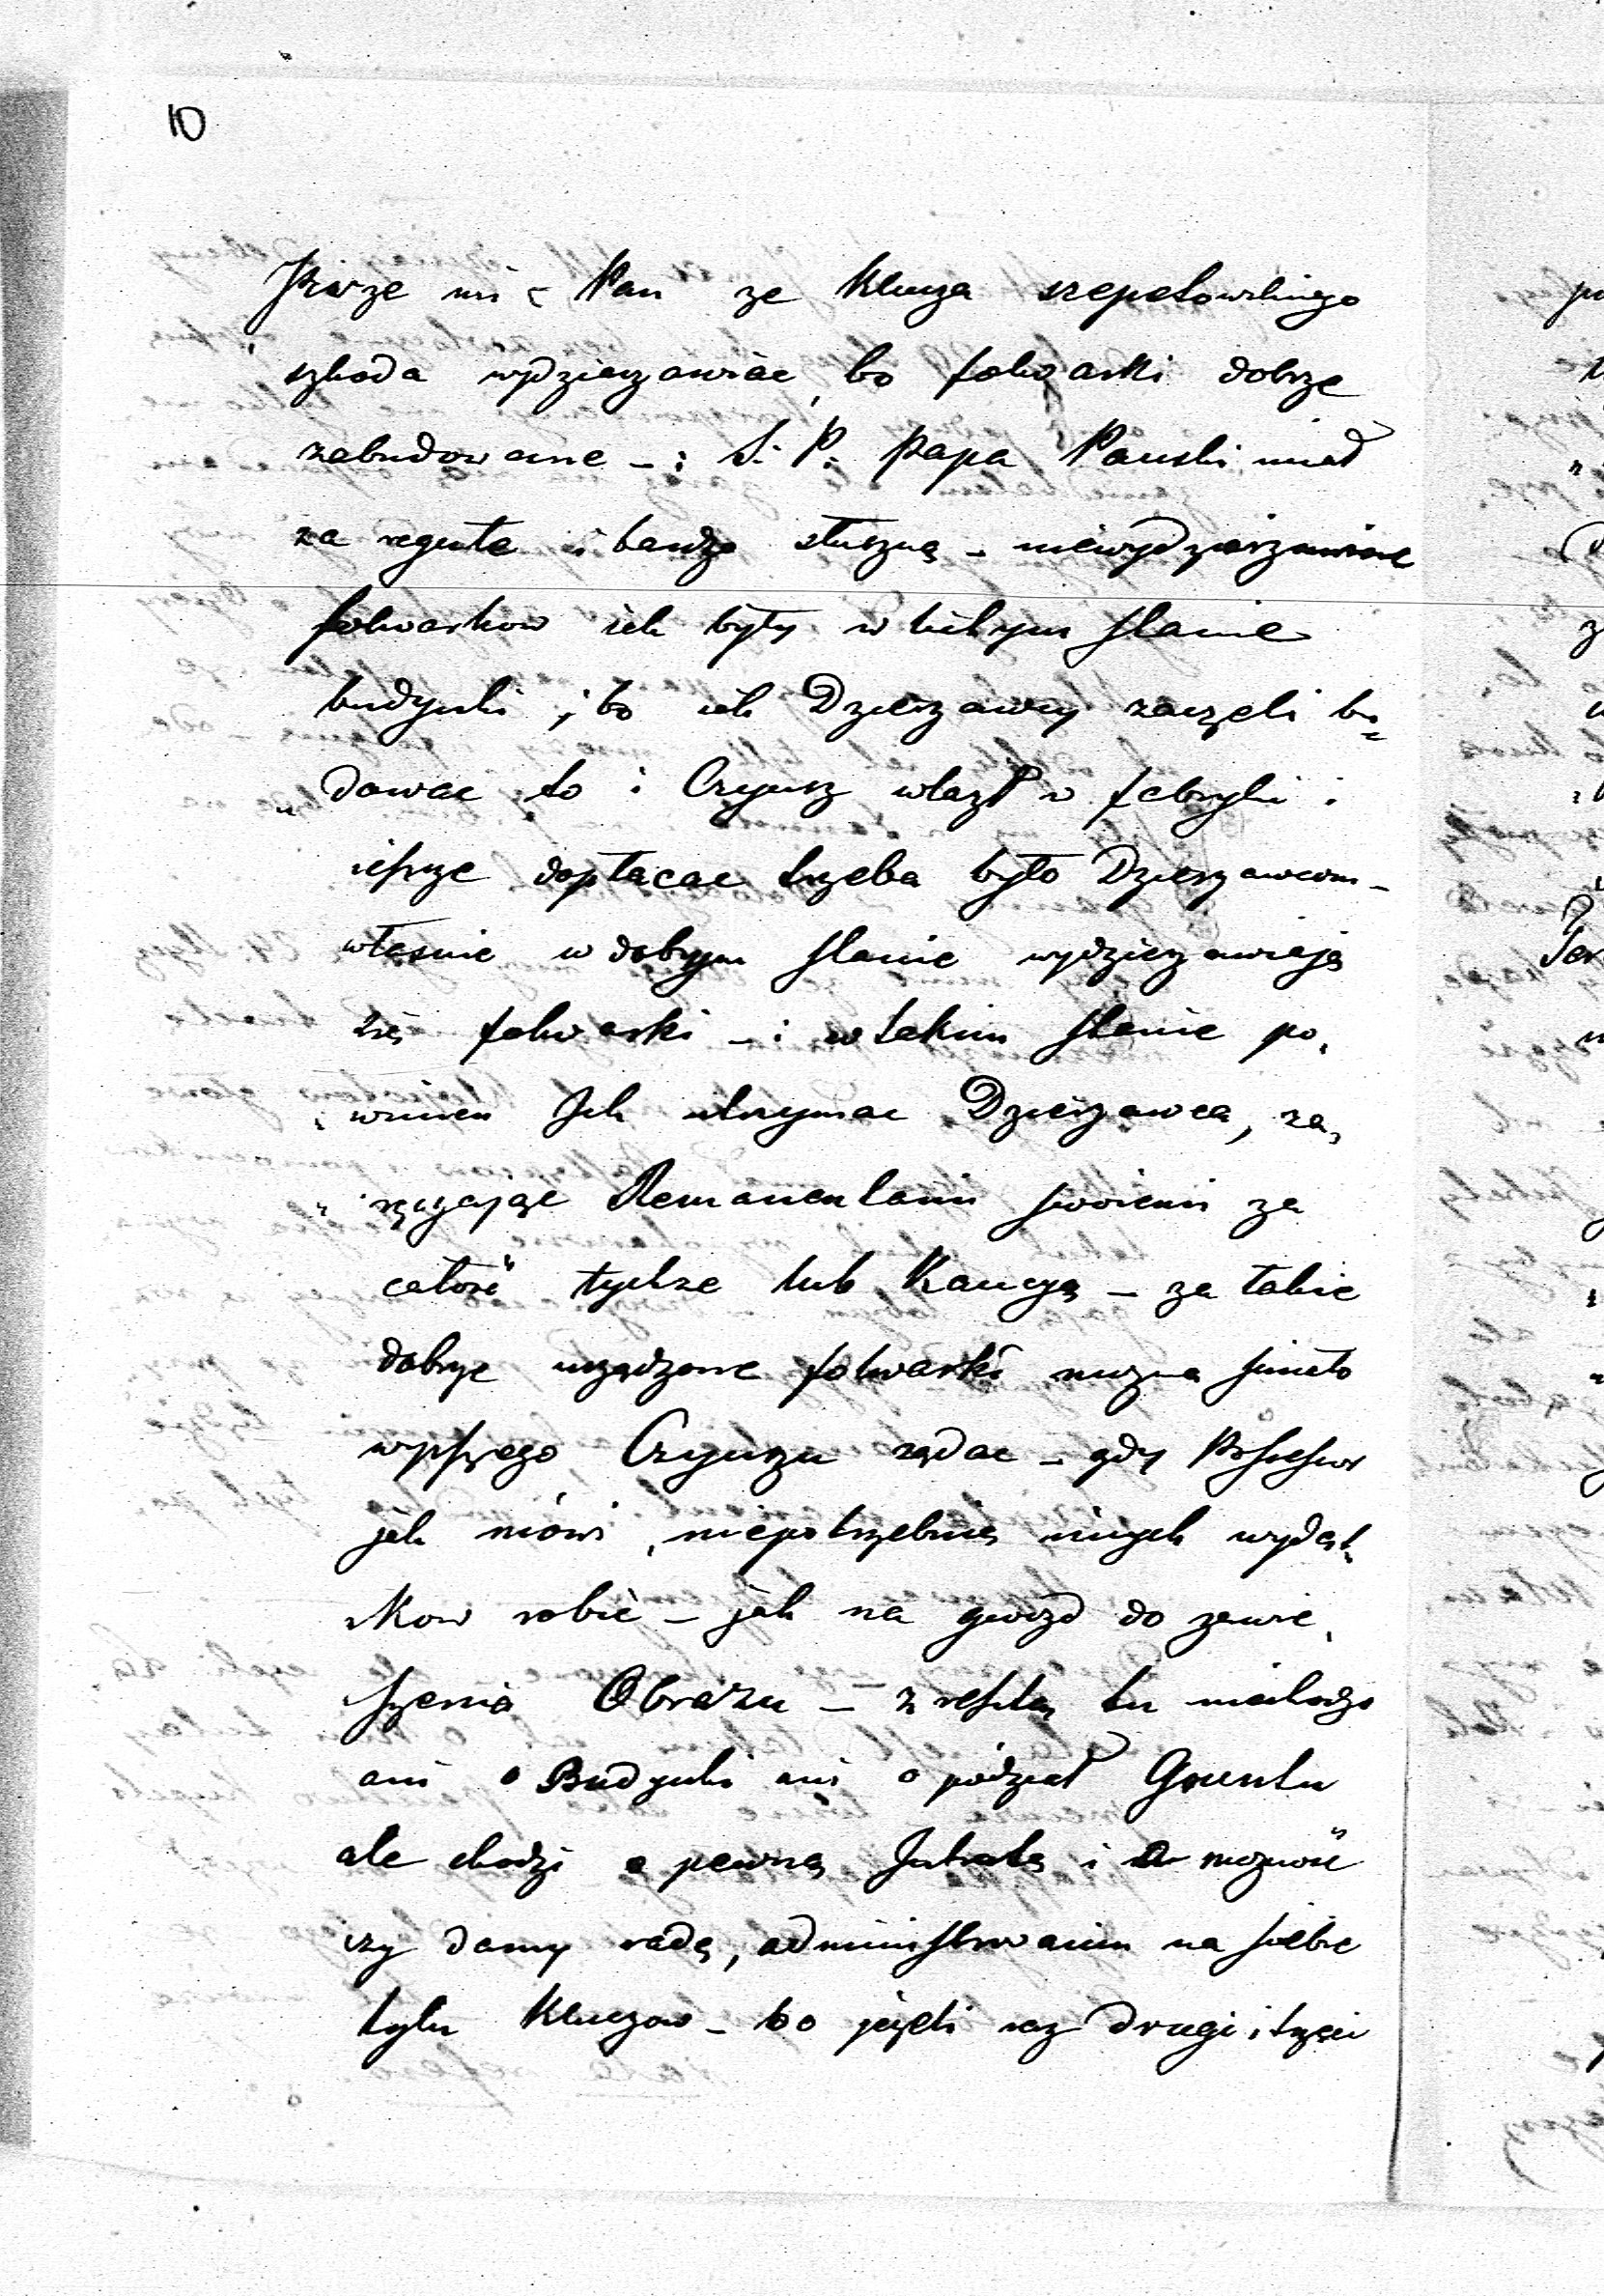 10
Pisze mi Pan ze Klucza szepetowskiego
szkoda wydzierzawiać, bo folwarki dobrze
zabudowane - i S. P. Papa Pański miał
za regułe i bardzo słuszną - niewydzierzawiać
folwarkow jak były w lichym stanie
budynki, bo jak Dzierzawcy zaczęli bu=
"dowac to i Czynsz wlazł w fabryki i
ieszcze dopłacac trzeba było Dzierzawcom -
własnie w dobrym stanie wydzierzawiają
się folwarki - i w takim stanie po,
winien Jch utrzymac Dzierzawca, za,
"ręczając Remanentami swoiemi za
całość tychze lub Kaucyą - za takie
dobrze urządzone folwarki mozna smiało
wyższego Czynszu ządac - gdy Possessor
jak mówi, niepotrzebuie innych wydat,
kow robić - jak na gwozd do zawie,
szenia Obrazu - zresztą tu niechodzi
ani o Budynki ani o podział Gruntu
ale chodzi o pewną Jntratę i o moznosć
czy damy radę, administrowaniu na siebie
tylu Kluczow - bo jezeli raz drugi i trzeci